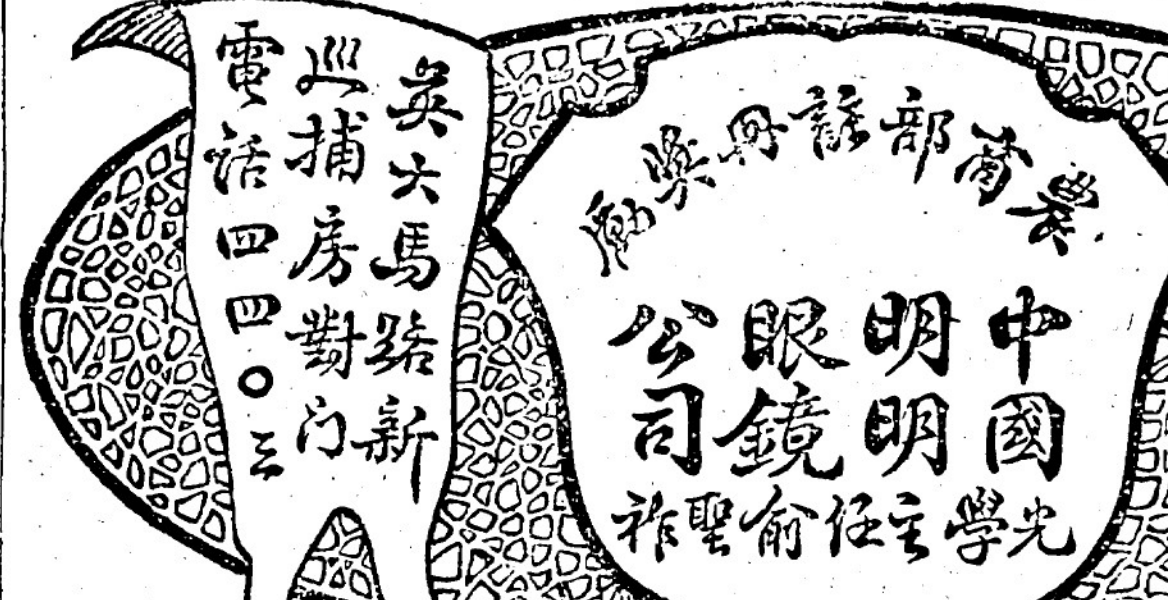 農商部註冊獎勵
中國
明明
眼鏡
公司
光學主任俞聖祚
英大馬路新
巡捕房對门
電話四四〇三